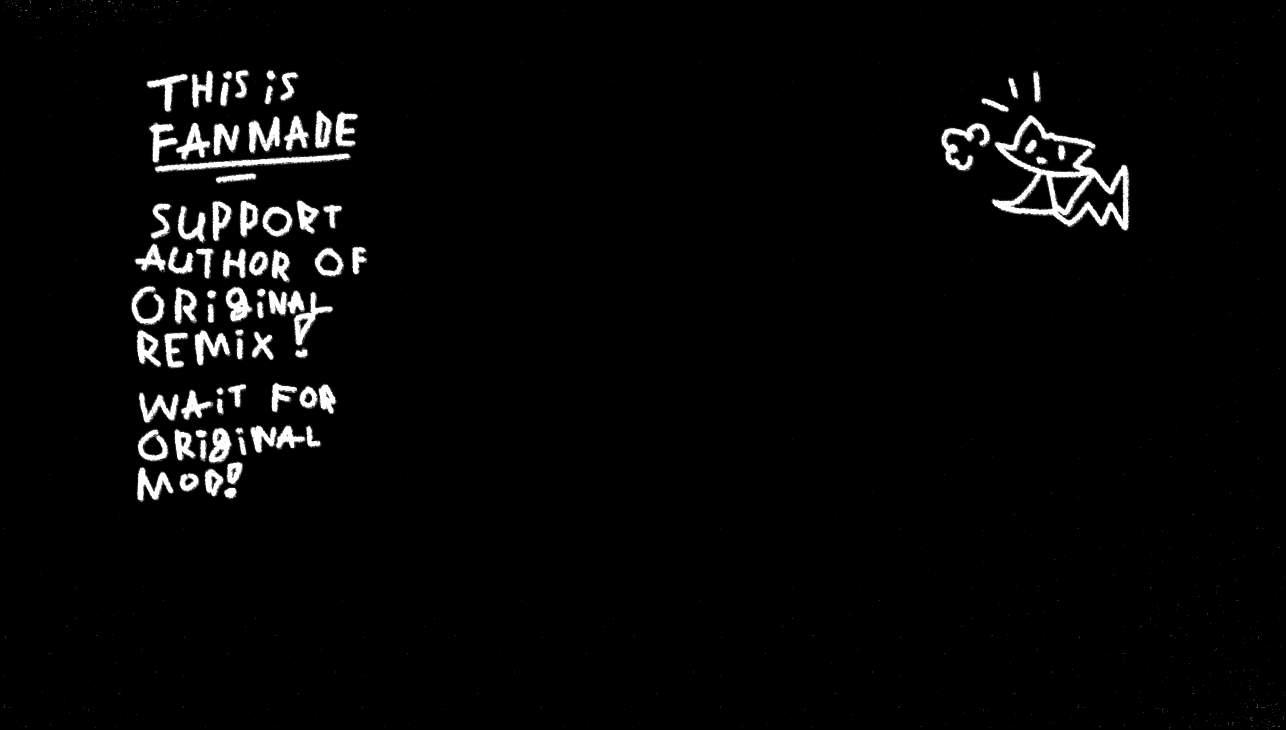 THiS iS
FANMADE
SUPPORT
AUTHOR OF
ORiGiNAL
REMiX!
WAiT FOR
ORiGiNAL
MOD!